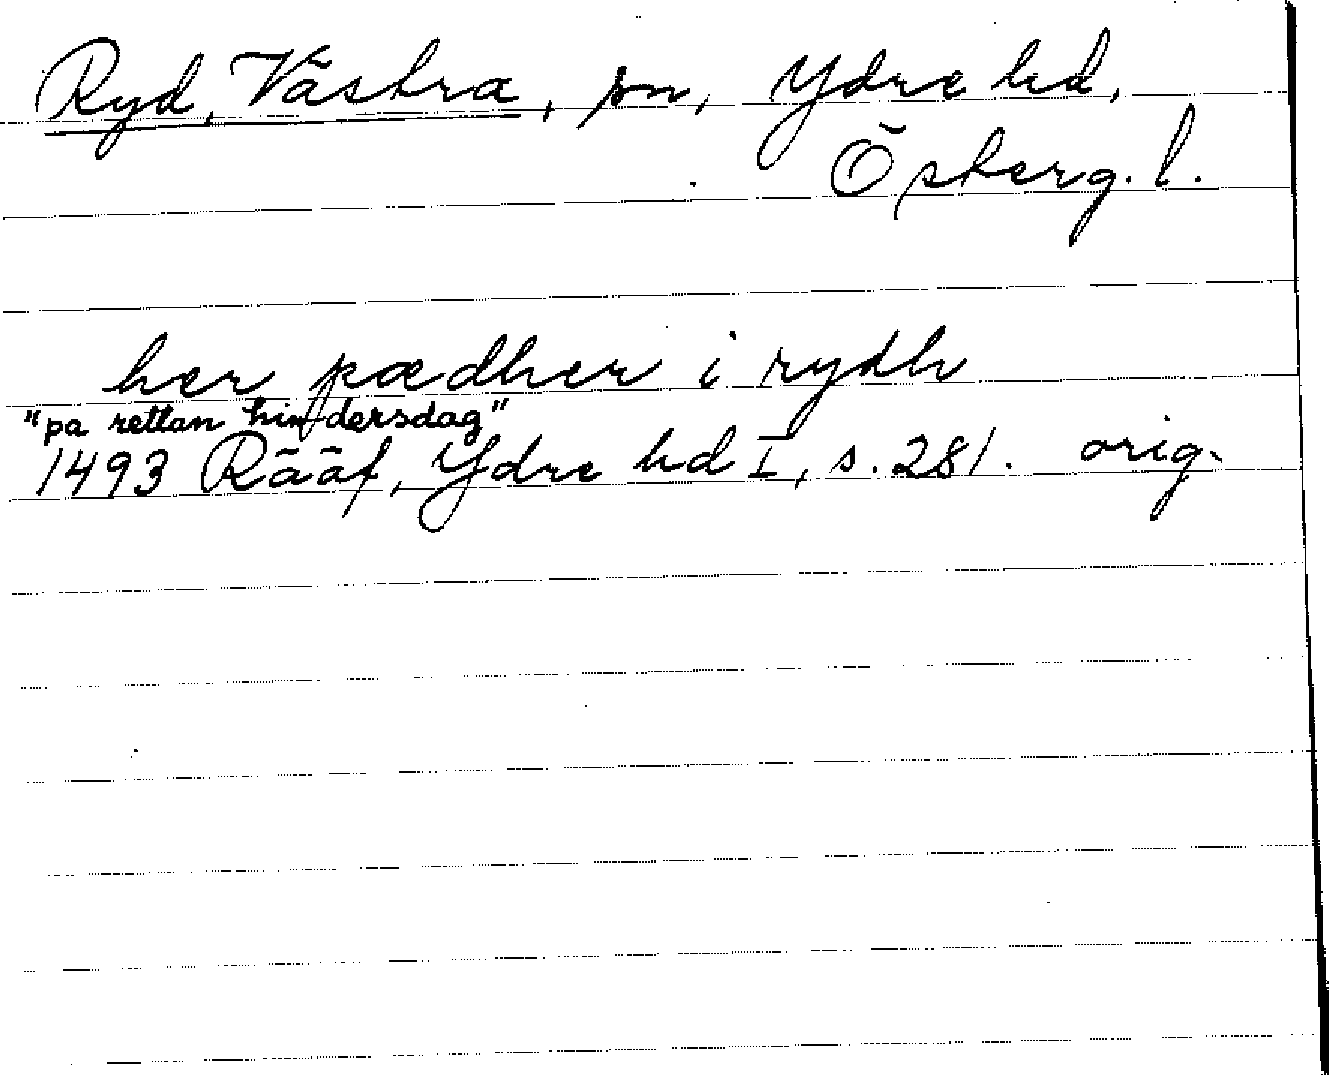 Ryd, Västra, sn, Ydre hd,
Östergl.
her pædher i rydh
"pa rettan hindersdag"
1493 Rääf, Ydre hd I, s. 281. orig.